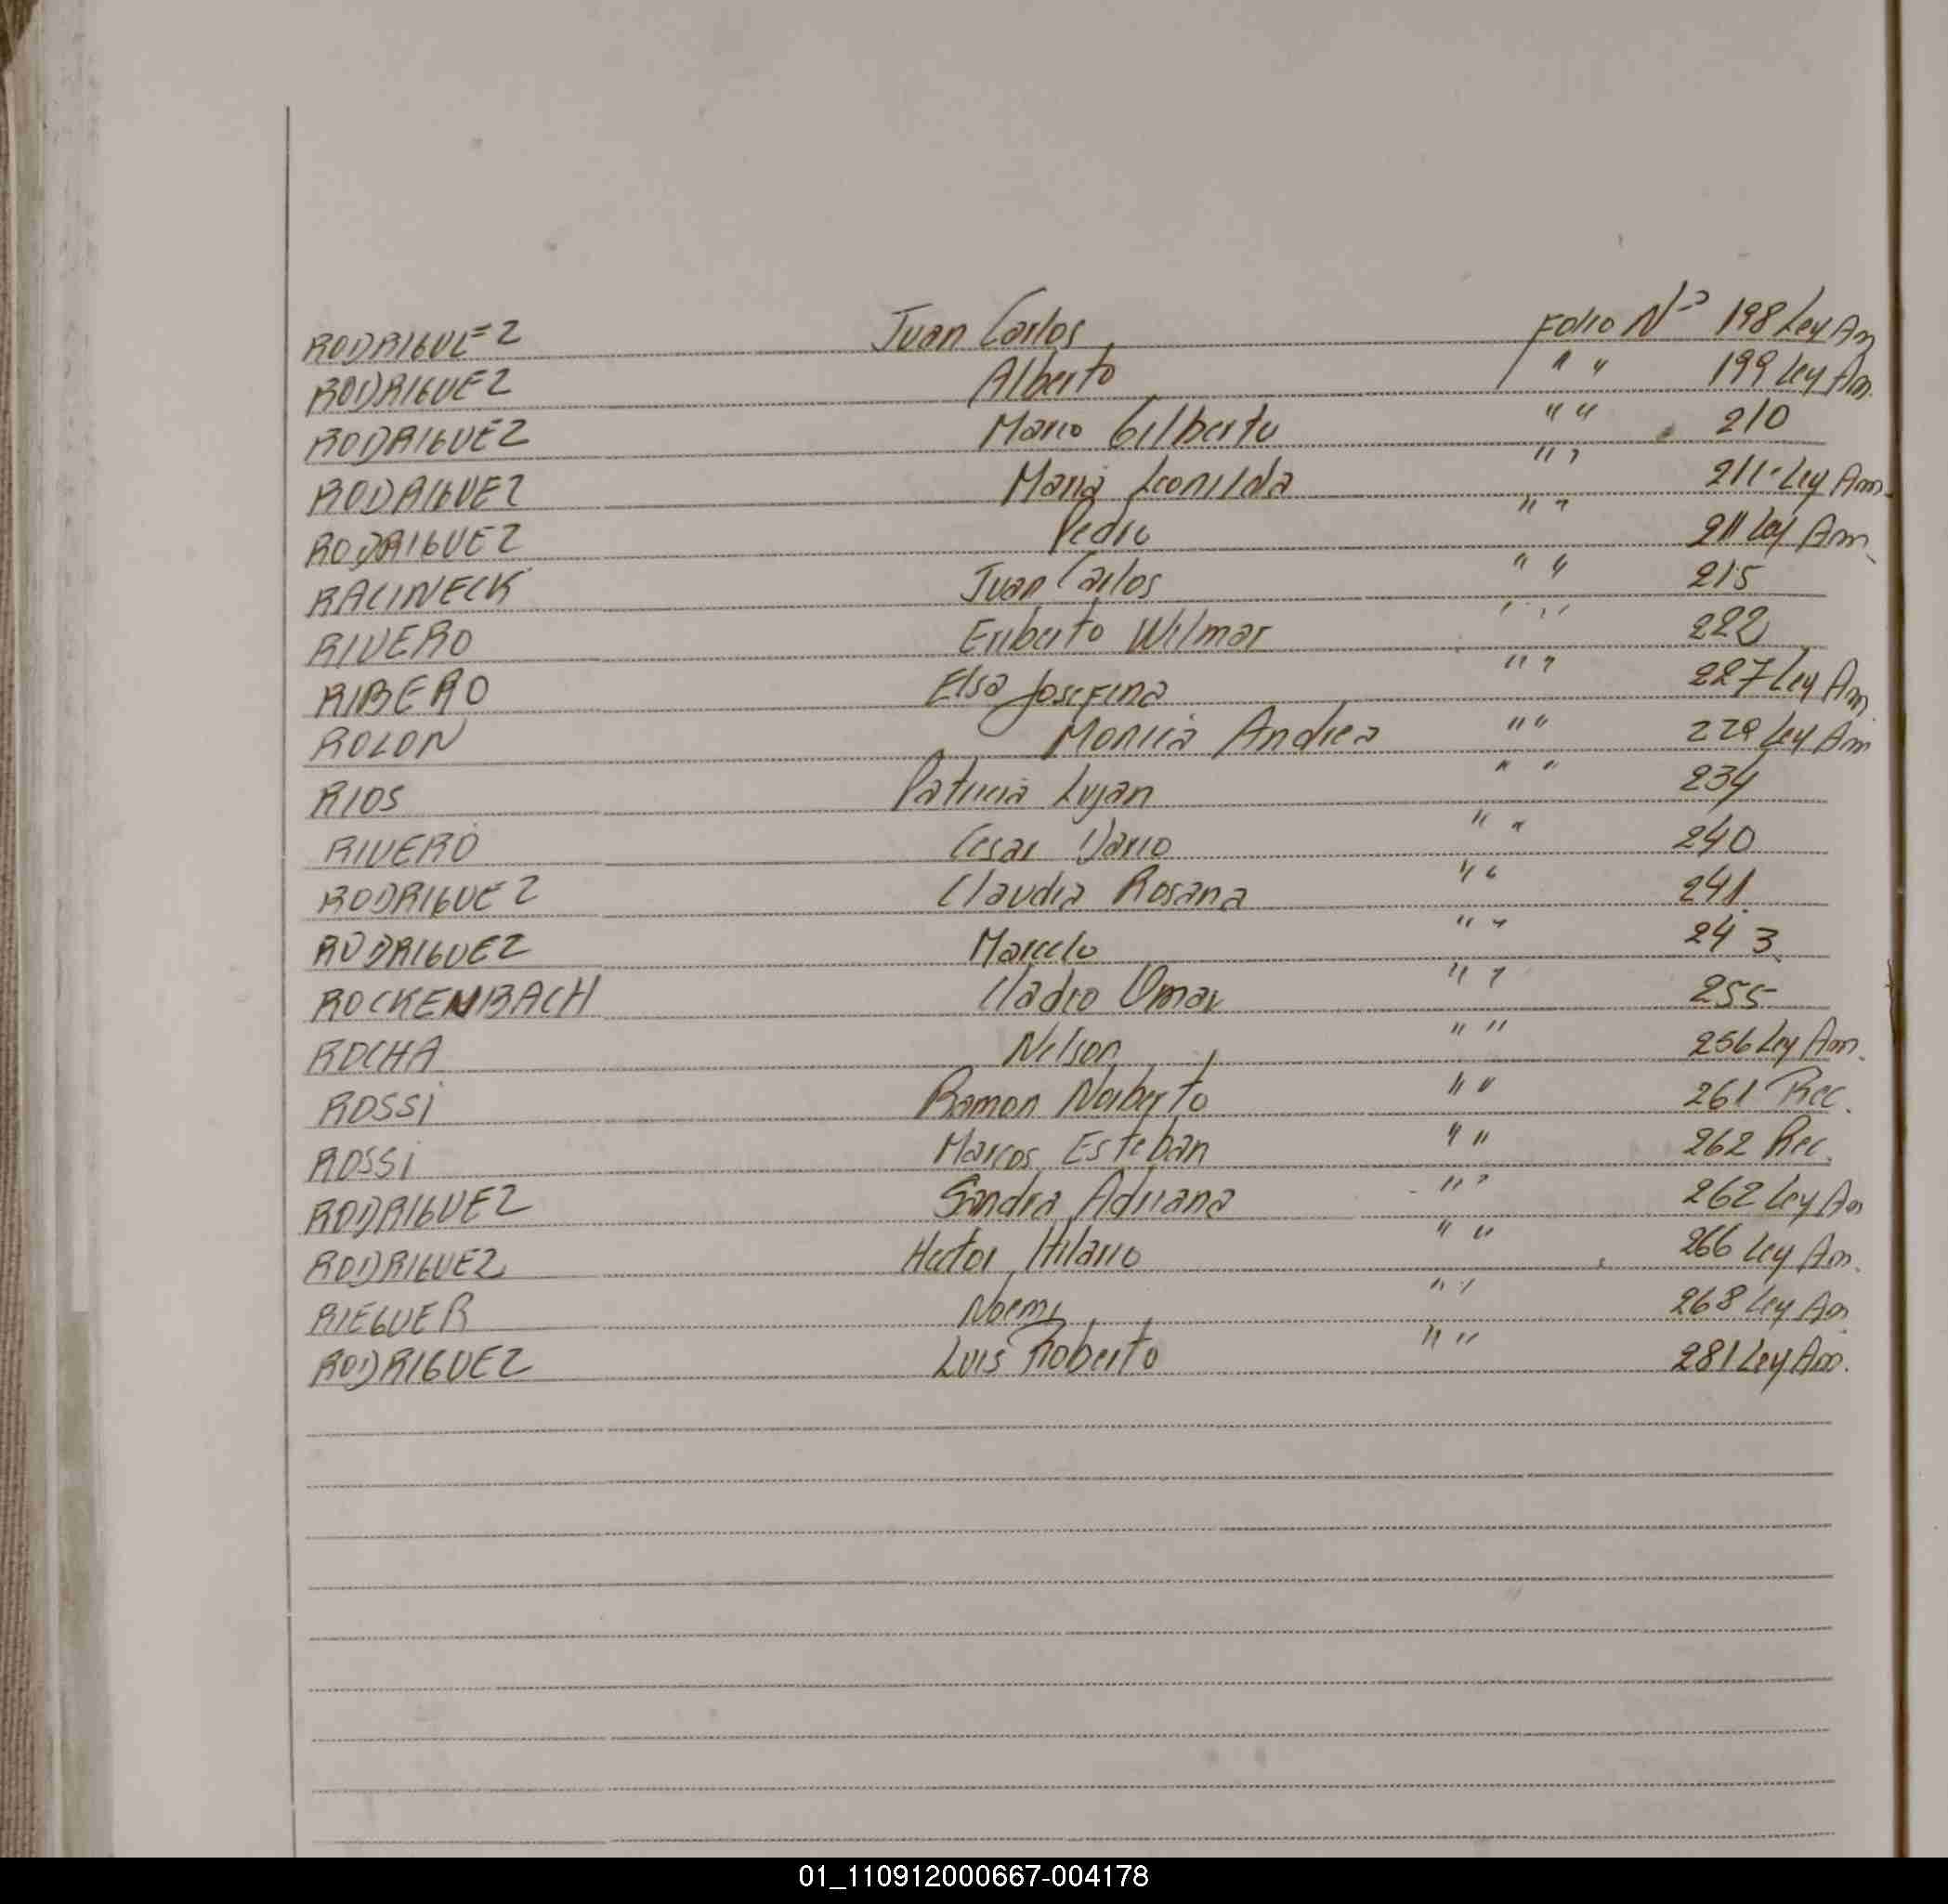 RODRIGUEZ Juan Carlos Folio Nº 198 Ley Am
RODRIGUEZ Alberto " " 199 Ley Am.
RODRIGUEZ Mario Gilberto " " 210
RODRIGUEZ Maria Leonilda " " 211 Ley Am.
RODRIGUEZ Pedro " " 211 Ley Am
RACINECK Juan Carlos " " 215
RIVERO Eriberto Wilmar " " 222
RIBERO Elsa Josefina " " 227 Ley Am
ROLON Monica Andrea " " 229 Ley Am
RIOS Patricia Lujan " " 234
RIVERO Cesar Dario " " 240
RODRIGUEZ Claudia Rosana " " 241
RODRIGUEZ Marcelo " " 243
ROCKENBACH Cladio Omar " " 255
ROCHA Nelson " " 256 Ley Am.
ROSSI Ramon Norberto " " 261 Rec.
ROSSI Marcos Esteban " " 262 Rec.
RODRIGUEZ Sandra Adriana " " 262 Ley Am
RODRIGUEZ Hector Hilario " " 266 Ley Am.
RIEGUER Noemi " " 268 Ley Am
RODRIGUEZ Luis Roberto " " 281 Ley Am.
01_110912000667-004178